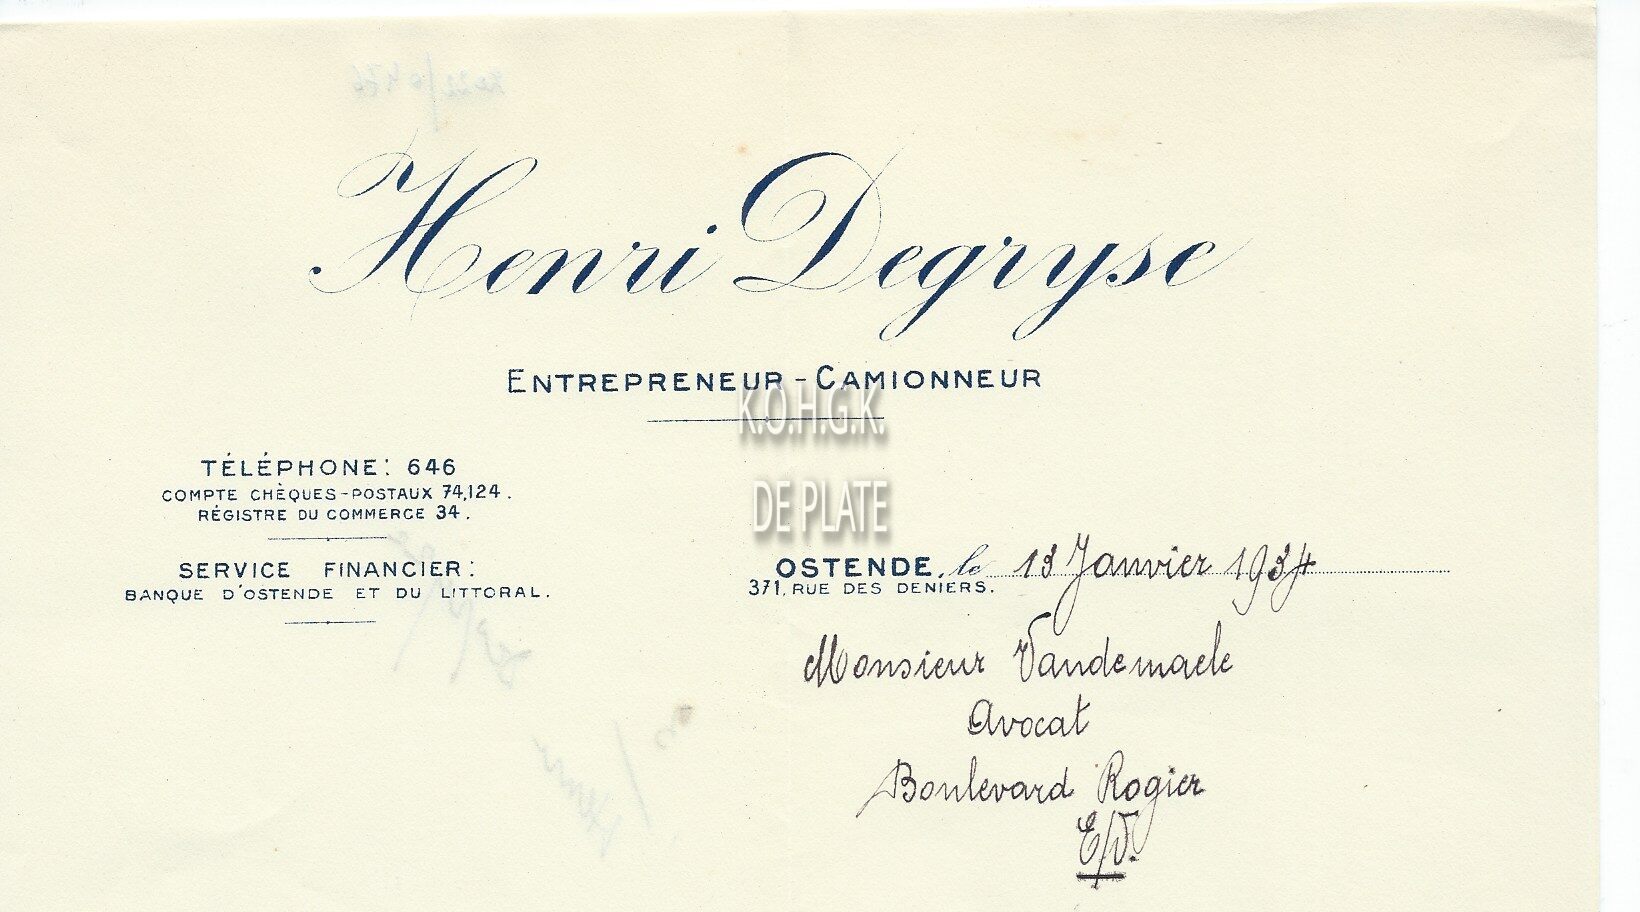 Henri Degryse
ENTREPRENEUR - CAMIONNEUR
K.O.H.G.K.
DE PLATE
TÉLÉPHONE: 646
COMPTE CHÈQUES-POSTAUX 74,124.
RÉGISTRE DU COMMERCE 34.
SERVICE FINANCIER:
BANQUE D'OSTENDE ET DU LITTORAL.
OSTENDE, le 13 Janvier 1934
371, RUE DES DENIERS.
Monsieur Vandemaele
Avocat
Boulevard Rogier
E/V.